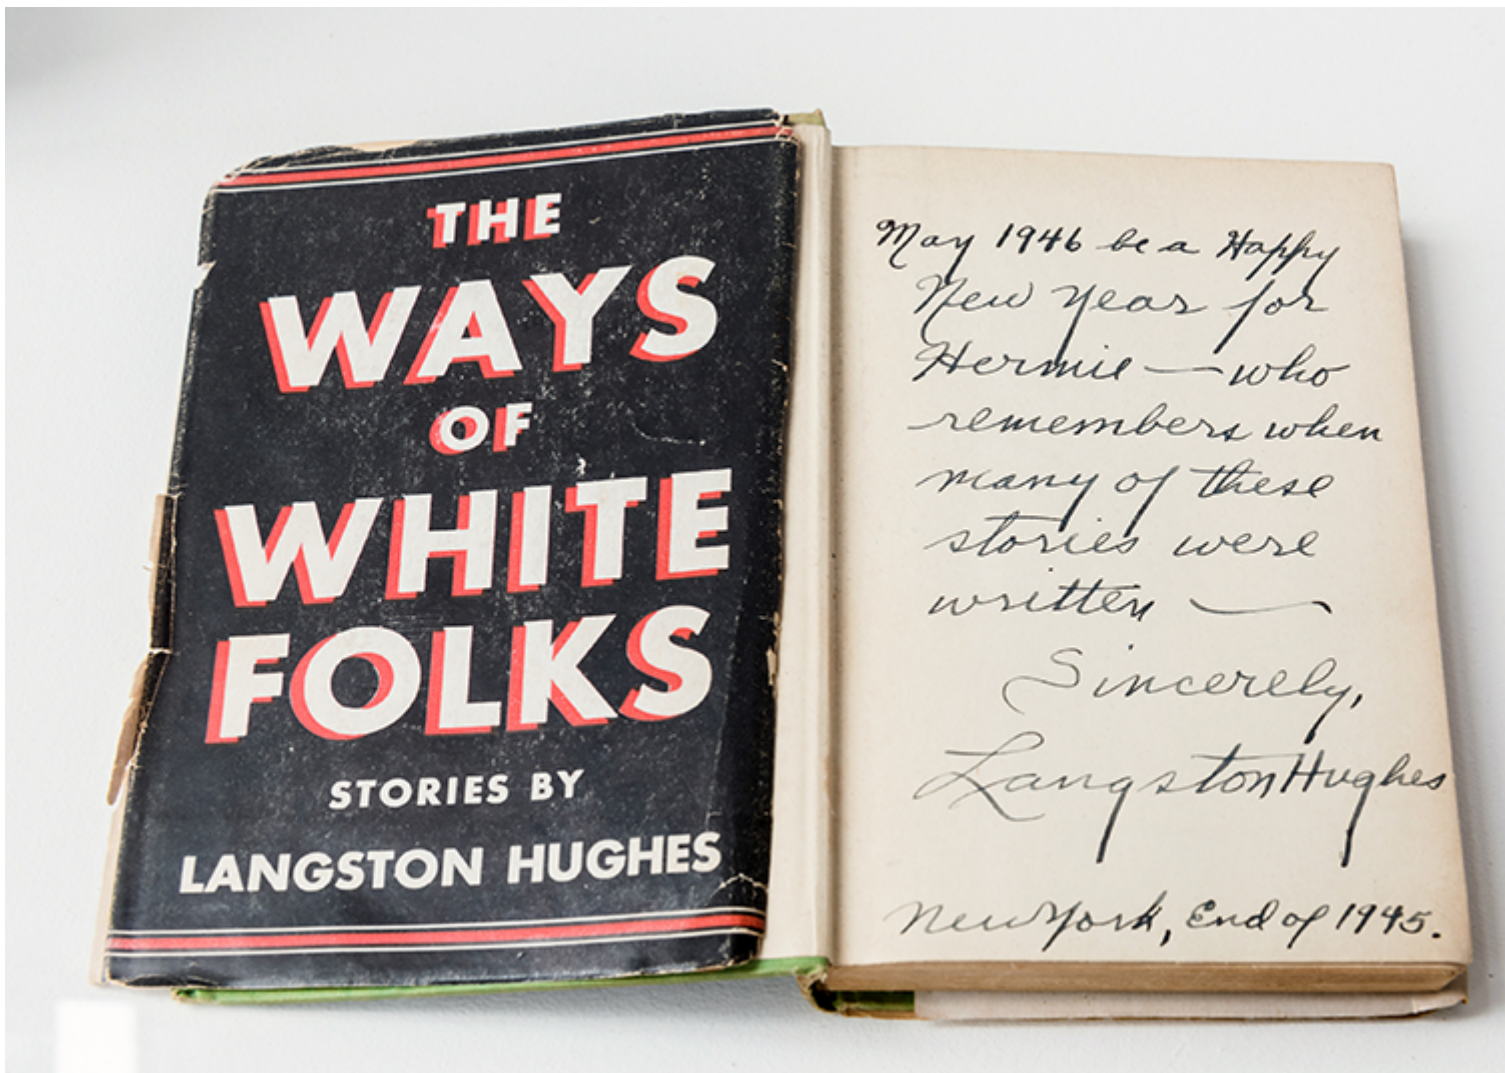 THE
WAYS
OF
WHITE
FOLKS
STORIES BY
LANGSTON HUGHES
May 1946 be a Happy
New Year for
Hermie — who
remembers when
many of these
stories were
written —
Sincerely,
Langston Hughes
New York, End of 1945.